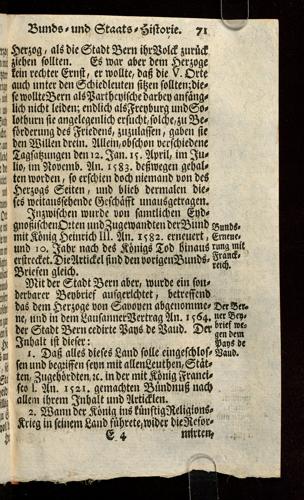 Bunds- und Staats-Historie. 71
Herzog, als die Stadt Bern ihr Volck zurück
ziehen sollten. Es war aber dem Herzoge
kein rechter Ernst, er wollte, daß die V. Orte
auch unter den Schiedleuten sitzen sollten; die-
se wollte Bern als Partheyische darbey anfäng-
lich nicht leiden; endlich als Freyburg und So-
lothurn sie angelegenlich ersucht, solche, zu Be-
förderung des Friedens, zuzulassen, gaben sie
den Willen drein. Allein, obschon verschiedene
Tagsatzungen den 12. Jan. 15. April, im Ju-
lio, im Novemb. An. 1583. deßwegen gehal-
ten worden, so erschien doch niemand von des
Herzogs Seiten, und blieb dermalen die-
ses weitaussehende Geschäfft unausgetragen.
Inzwischen wurde von samtlichen Eyd-
gnoßischen Orten und Zugewandten der Bund
mit König Heinrich III. An. 1582. erneuert,
und 10. Jahr nach des Königs Tod hinaus
erstrecket. Die Artikel sind den vorigen Bunds-
Briefen gleich.
Bunds-
Erneue-
rung mit
Franck-
reich.
Mit der Stadt Bern aber, wurde ein son-
derbarer Beybrief aufgerichtet, betreffend
das dem Herzoge von Savoyen abgenomme-
ne, und in dem Lausanner Vertrag An. 1564.
der Stadt Bern cedirte Pays de Vaud. Der
Inhalt ist dieser:
Der Ber-
ner Bey-
brief we-
gen dem
Pays de
Vaud.
1. Daß alles dieses Land solle eingeschlos-
sen und begriffen seyn mit allen Leuthen, Stät-
ten, Zugehördten, &c. in der mit König Franci-
sco I. An. 1521. gemachten Bündnuß nach
allem ihrem Inhalt und Articklen.
2. Wann der König ins künftig Religions-
Krieg in seinem Land führete, wider die Refor-
E 4 mirten,